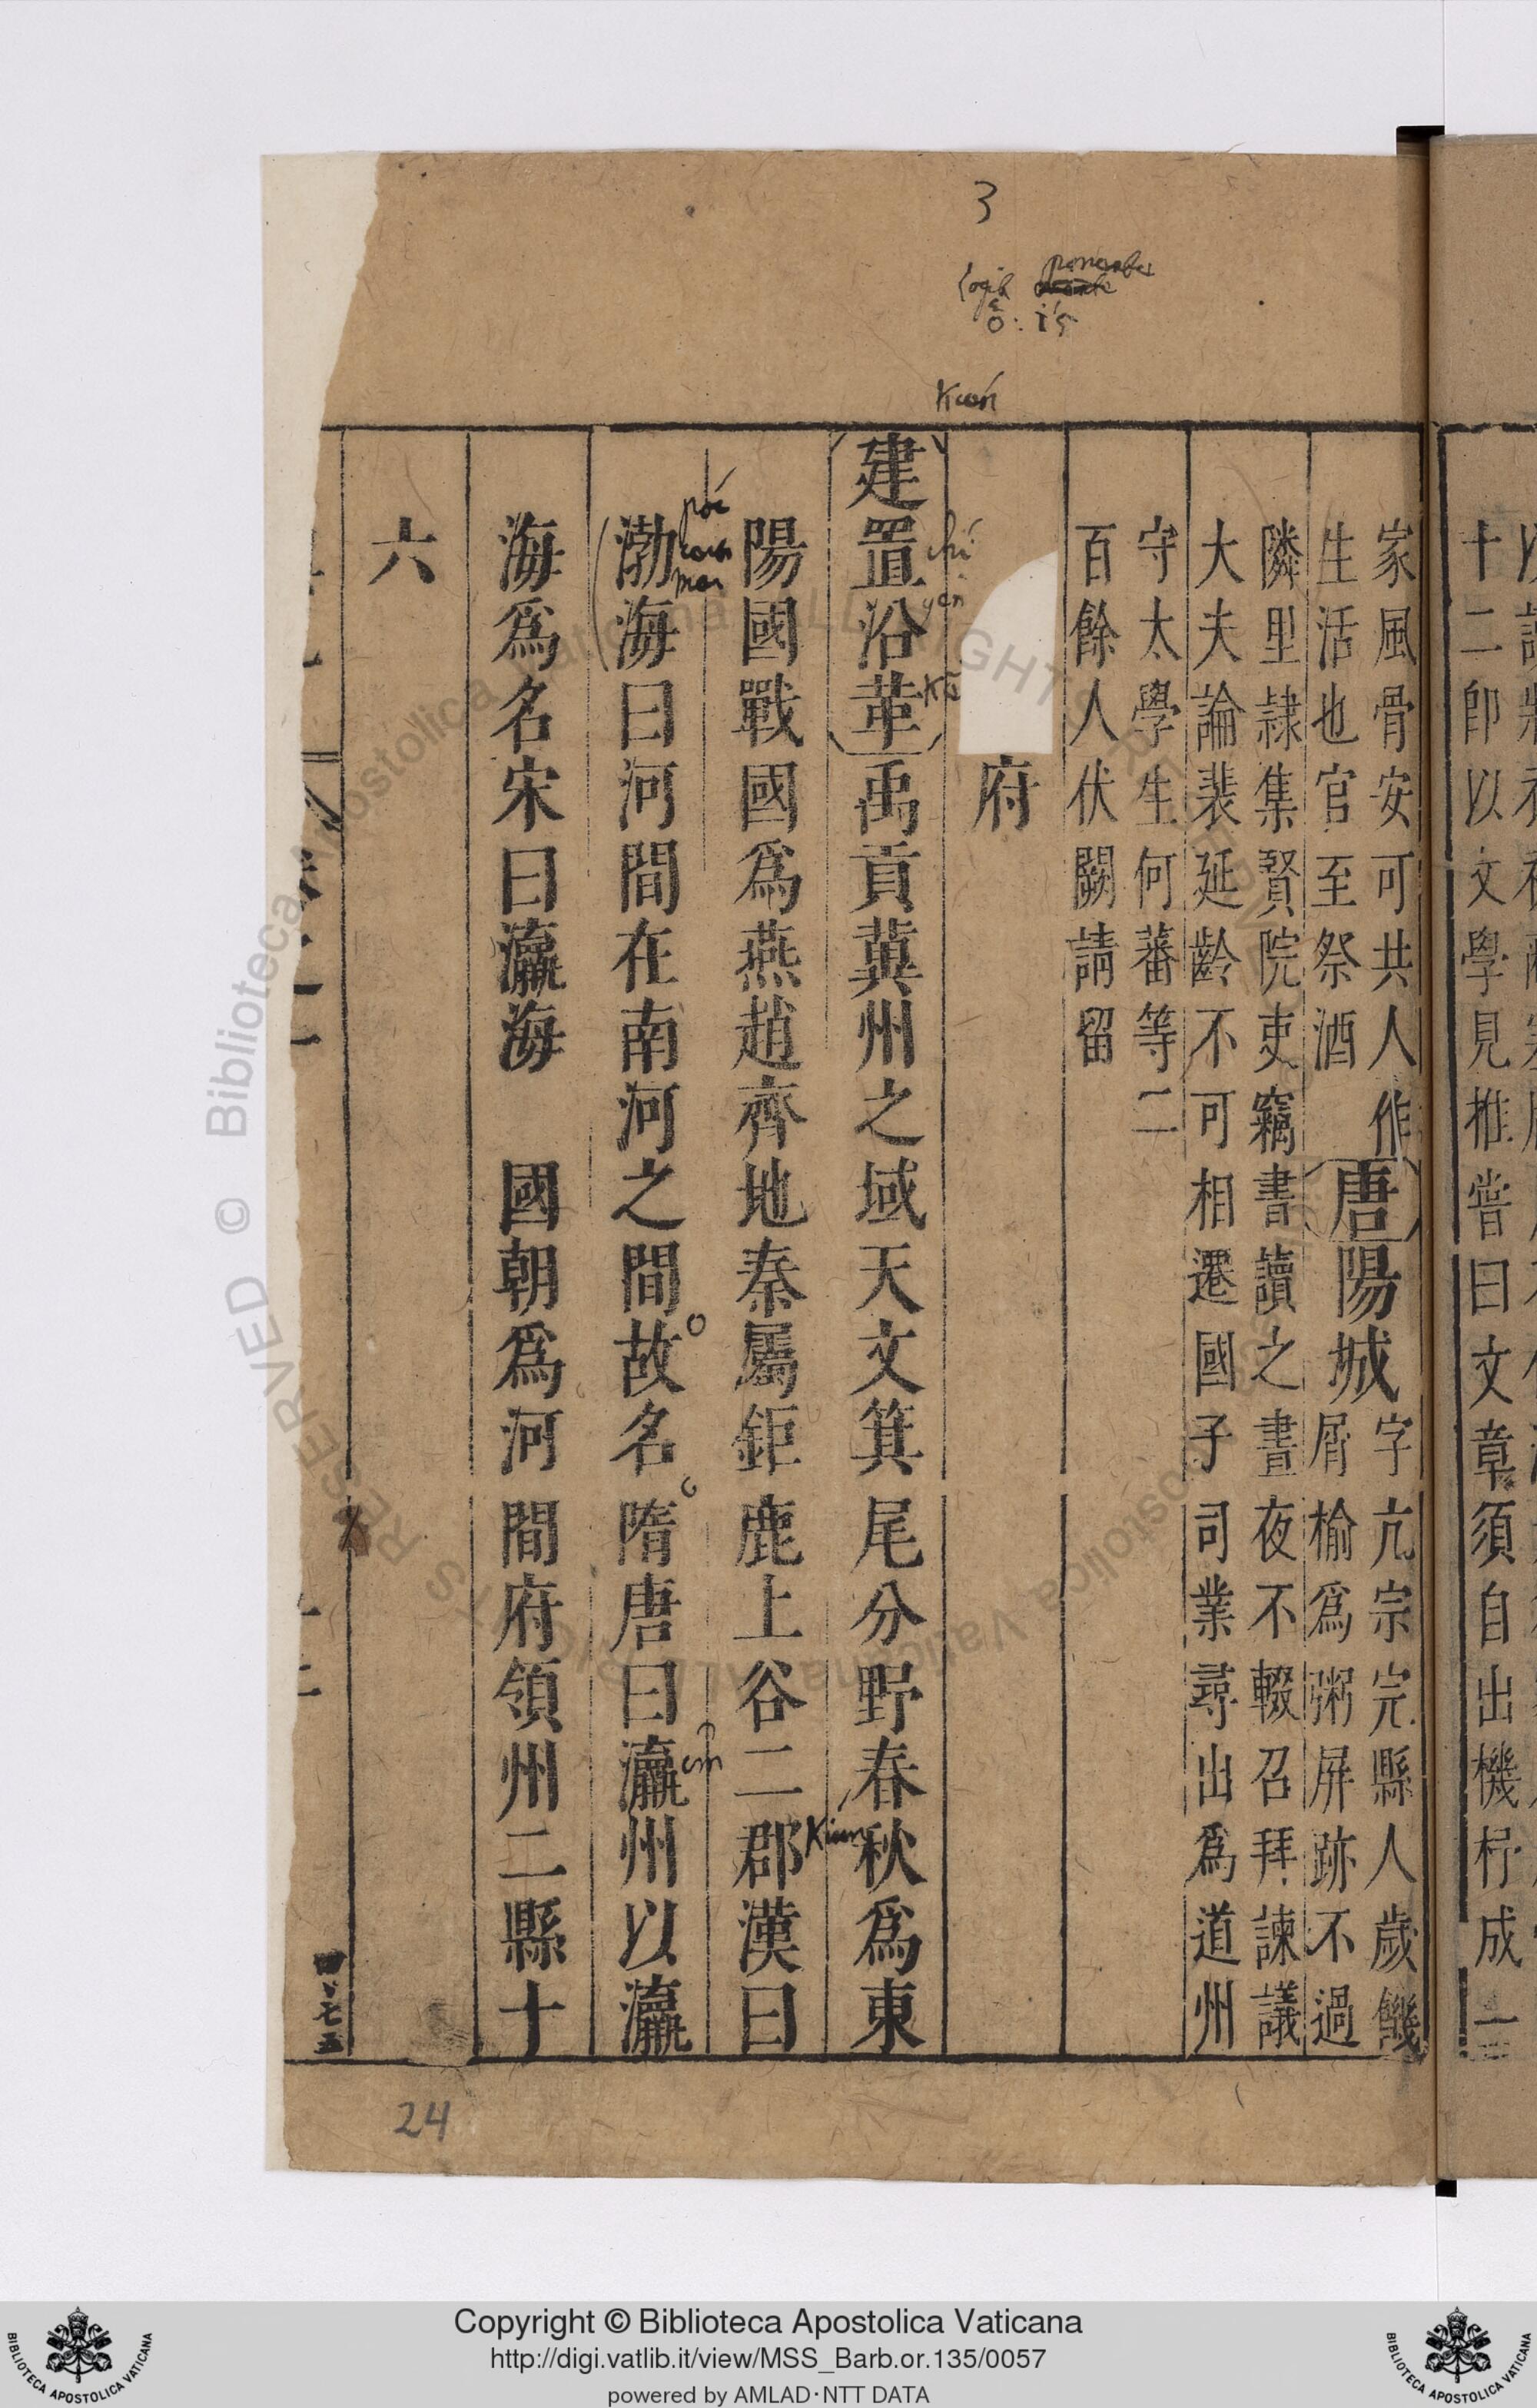 3
Kuón
家風骨安可共人作
生活也官至祭酒
唐陽城
字亢宗完縣人歲饑
屑榆爲粥屏跡不過
隣里隷集賢院吏竊書讀之晝夜不輟召拜諫議
大夫論裴延齡不可相遷國子司業尋出爲道州
守太學生何蕃等二
百餘人伏闕請留
府
建置沿革禹貢冀州之域天文箕尾分野春秋爲東
chí
yên
陽國戰國爲燕趙齊地秦屬鉅鹿上谷二郡漢曰
Kiún
渤海曰河間在南河之間故名隋唐曰瀛州以瀛
海爲名宋曰瀛海 國朝爲河間府領州二縣十
六
24
十二卽以文學見推嘗曰文章須自出機杼成一
© Biblioteca Apostolica Vaticana ALL RIGHTS RESERVED
Copyright © Biblioteca Apostolica Vaticana
http://digi.vatlib.it/view/MSS_Barb.or.135/0057
powered by AMLAD·NTT DATA
BIBLIOTECA APOSTOLICA VATICANA
BIBLIOTECA APOSTOLICA VATICANA